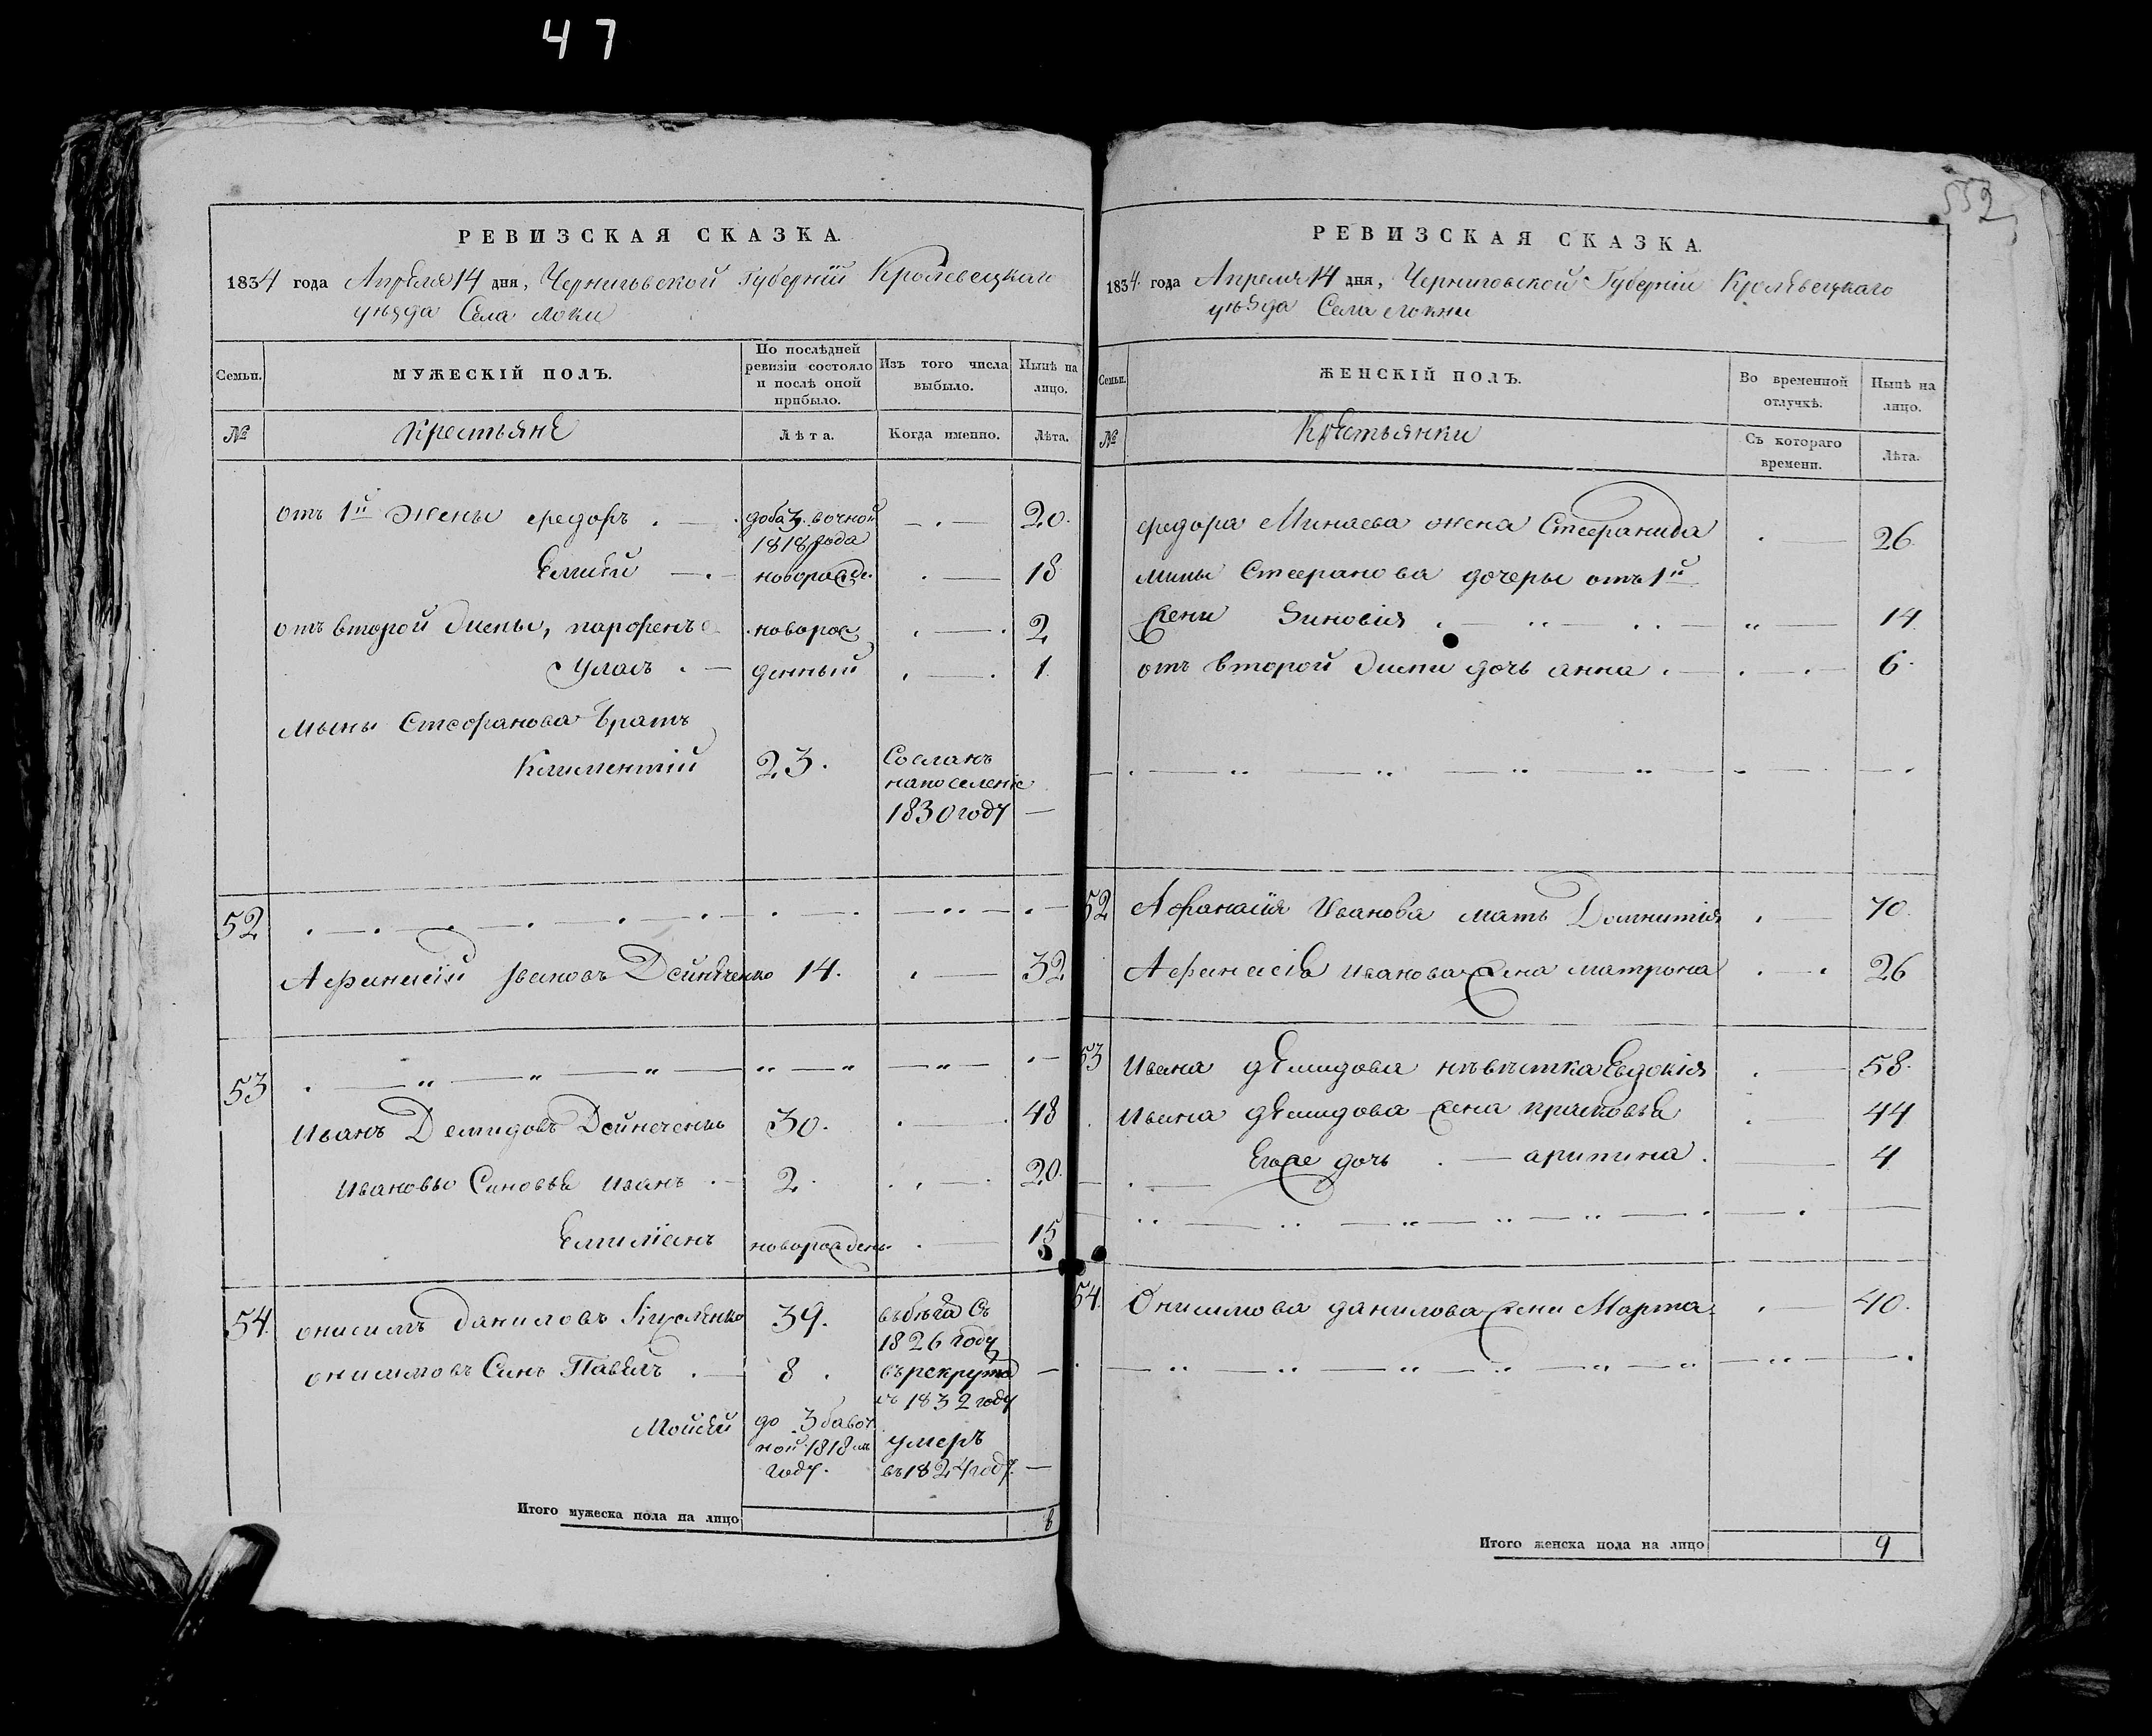 47
552
РЕВИЗСКАЯ СКАЗКА.
1834 года Апреля 14 дня, Черниговской Губерніи Кролевецкаго
уѣзда Села Локни
Семьи.
МУЖЕСКІЙ ПОЛЪ.
По послѣдней ревизіи состояло и послѣ оной прибыло.
Изъ того числа выбыло.
Нынѣ на лицо.
№
Крестьяне
Лѣта.
Когда именно.
Лѣта.
отъ 1й жены Федоръ . — . 20.
1818 года
— . — новорожде. . — 18
отъ второй жены, парфенъ .новорож . — . 2
Уласъ . — денный . — . 1.
Мины Стефанова братъ
Климентій 23. Сосланъ
на поселеніе
1830 году —
52
Афанасій Ивановъ Дейнеченко 14. . — 32
53
Иванъ Демидовъ Дейнеченко 30. . — . 48
Ивановы Синовья Иванъ . — 2. . . — . 20.
Емиліянъ новорожден. . — 15
54. онисимъ Даниловъ 39. въ бѣга съ
1826 году
онисимовъ Синъ Павелъ . — 8 . въ рекрута —
съ 1832 году
Мойсей до 3бавоч
ной 1818мъ умеръ
году. въ 1824 году. —
Итого мужеска пола на лицо 8
РЕВИЗСКАЯ СКАЗКА.
1834. года Апреля 14 дня, Черниговской Губерніи Кролевецкаго
уѣзда Села Локни
Семьи.
ЖЕНСКІЙ ПОЛЪ.
Во временной отлучкѣ.
Нынѣ на лицо.
№
Крестьянки
Съ котораго времени.
Лѣта.
федора Минаева жена Стефанида . — 26.
мины Стефанова дочеры отъ 1й
жени Зиновія . — 14.
отъ второй жени дочь анна . — . — . — 6.
52 Афанасія Иванова мать . — 70.
Афанасія Иванова жена матрона . — . 26
53 Ивана демидова невѣстка Евдокія . — 58.
Ивана демидова жена прасковья . — 44
Егоже дочь . — арипина . — 4.
54. Онисимова данилова жени Марта . — 40.
Итого женска пола на лицо 9